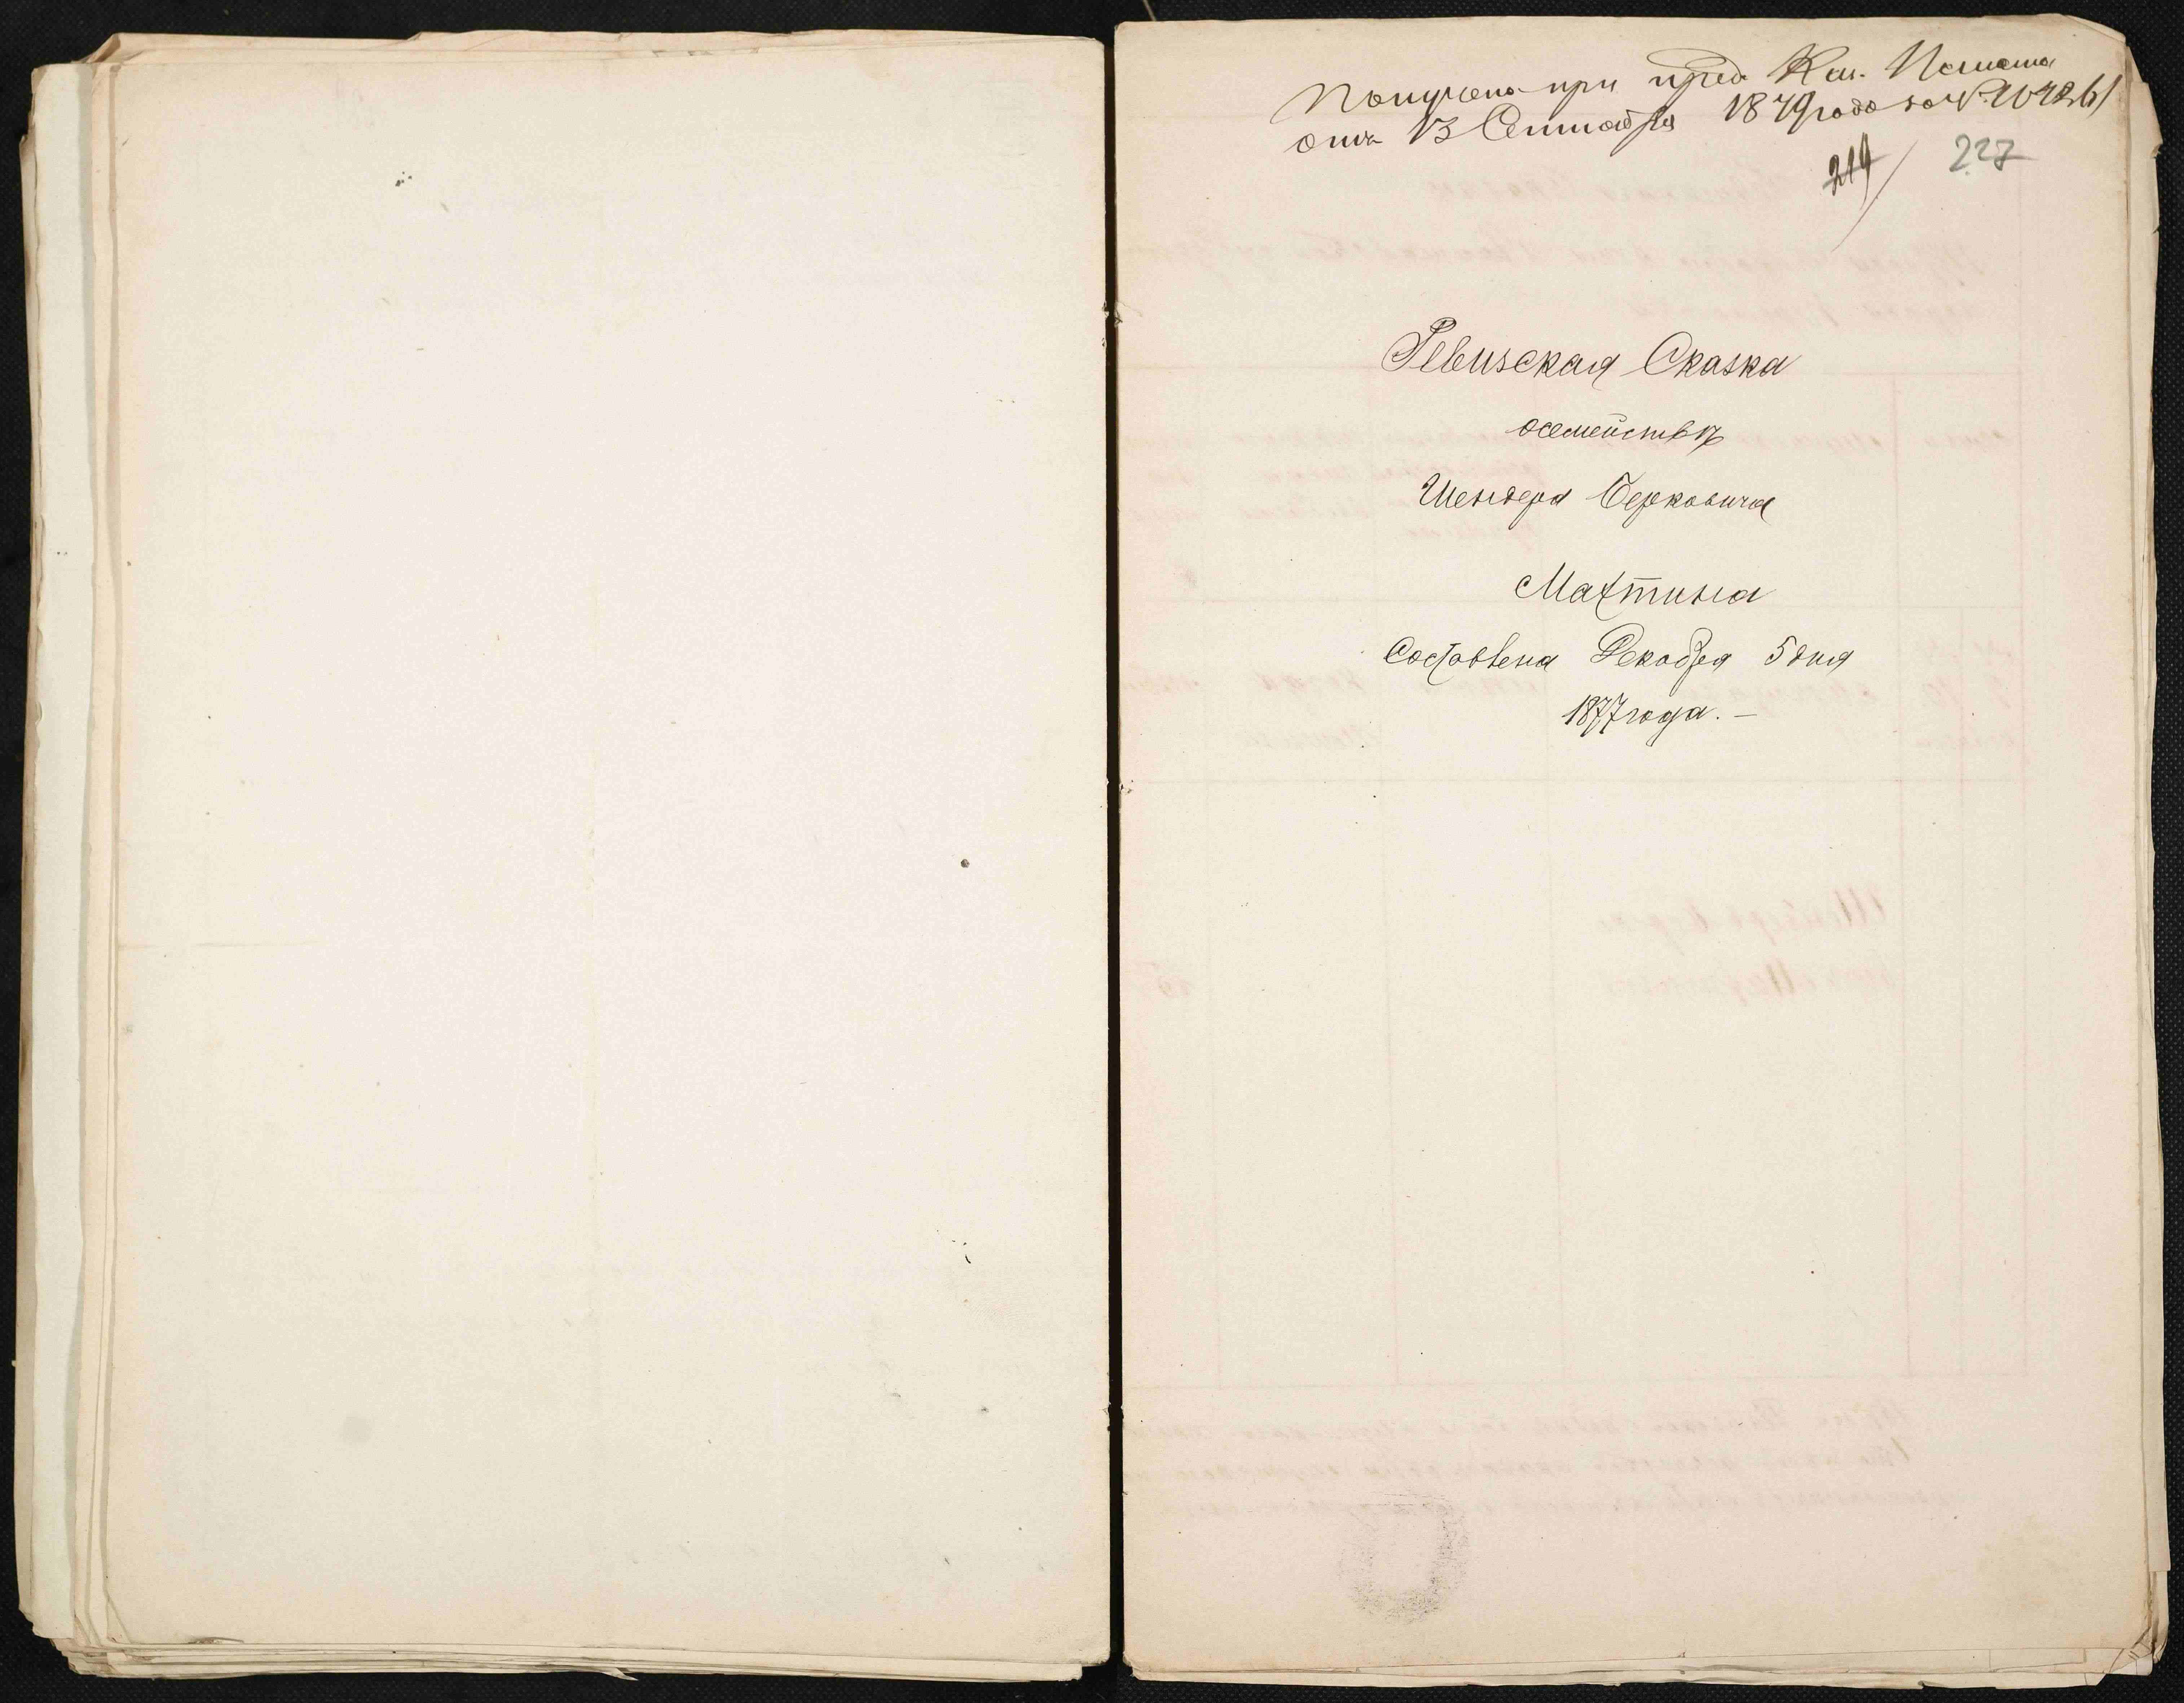 Получено при пред. Каз. Палаты
отъ 13 Сентября 1879 года за №
219 227
Ревизская Сказка
осемействѣ
Шендера Берковича
Махтина
Составлена Декабря 5 дня
1877 года. —